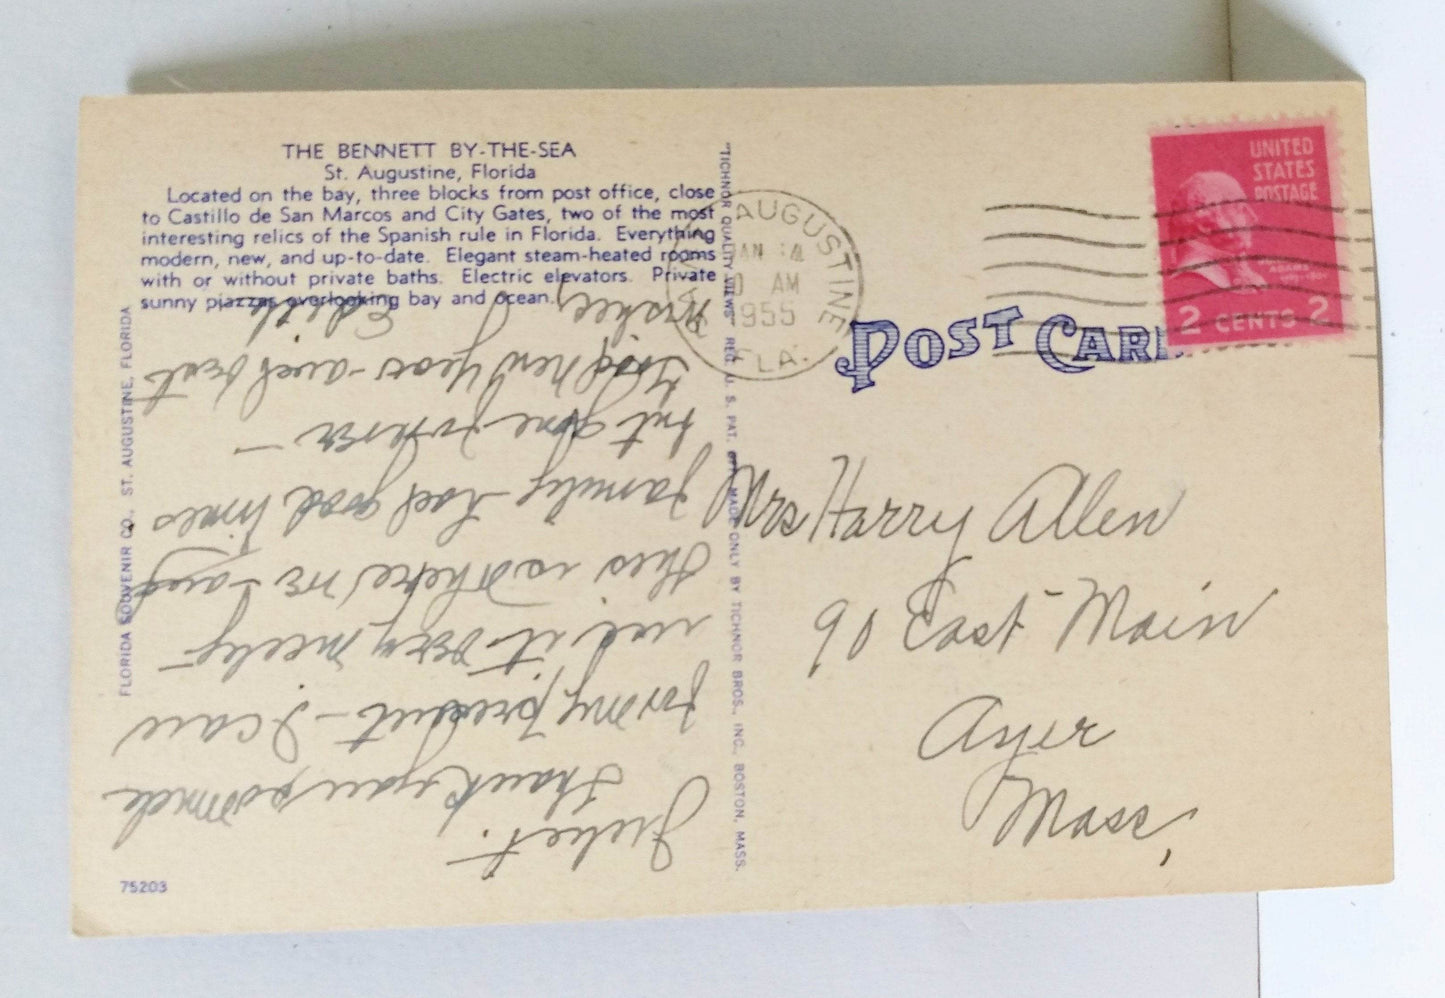 THE BENNETT BY-THE-SEA
St. Augustine, Florida
Located on the bay, three blocks from post office, close
to Castillo de San Marcos and City Gates, two of the most
interesting relics of the Spanish rule in Florida. Everything
modern, new, and up-to-date. Elegant steam-heated rooms
with or without private baths. Electric elevators. Private
sunny piazzas overlooking bay and ocean.
FLORIDA SOUVENIR CO., ST. AUGUSTINE, FLORIDA
75203
"TICHNOR QUALITY VIEWS" REG. U. S. PAT. OFF. MADE ONLY BY TICHNOR BROS., INC., BOSTON, MASS.
AUGUSTINE
JAN 14
AM
1955
FLA.
UNITED
STATES
POSTAGE
ADAMS
2 CENTS 2
POST CAR
Mrs Harry Allen
90 East Main
Ayer
Mass,
Thank you so much
for my present - I can
use it very nicely -
this is where we - and
family had good times
but gone forever -
Good new year and best
wishes, Edith